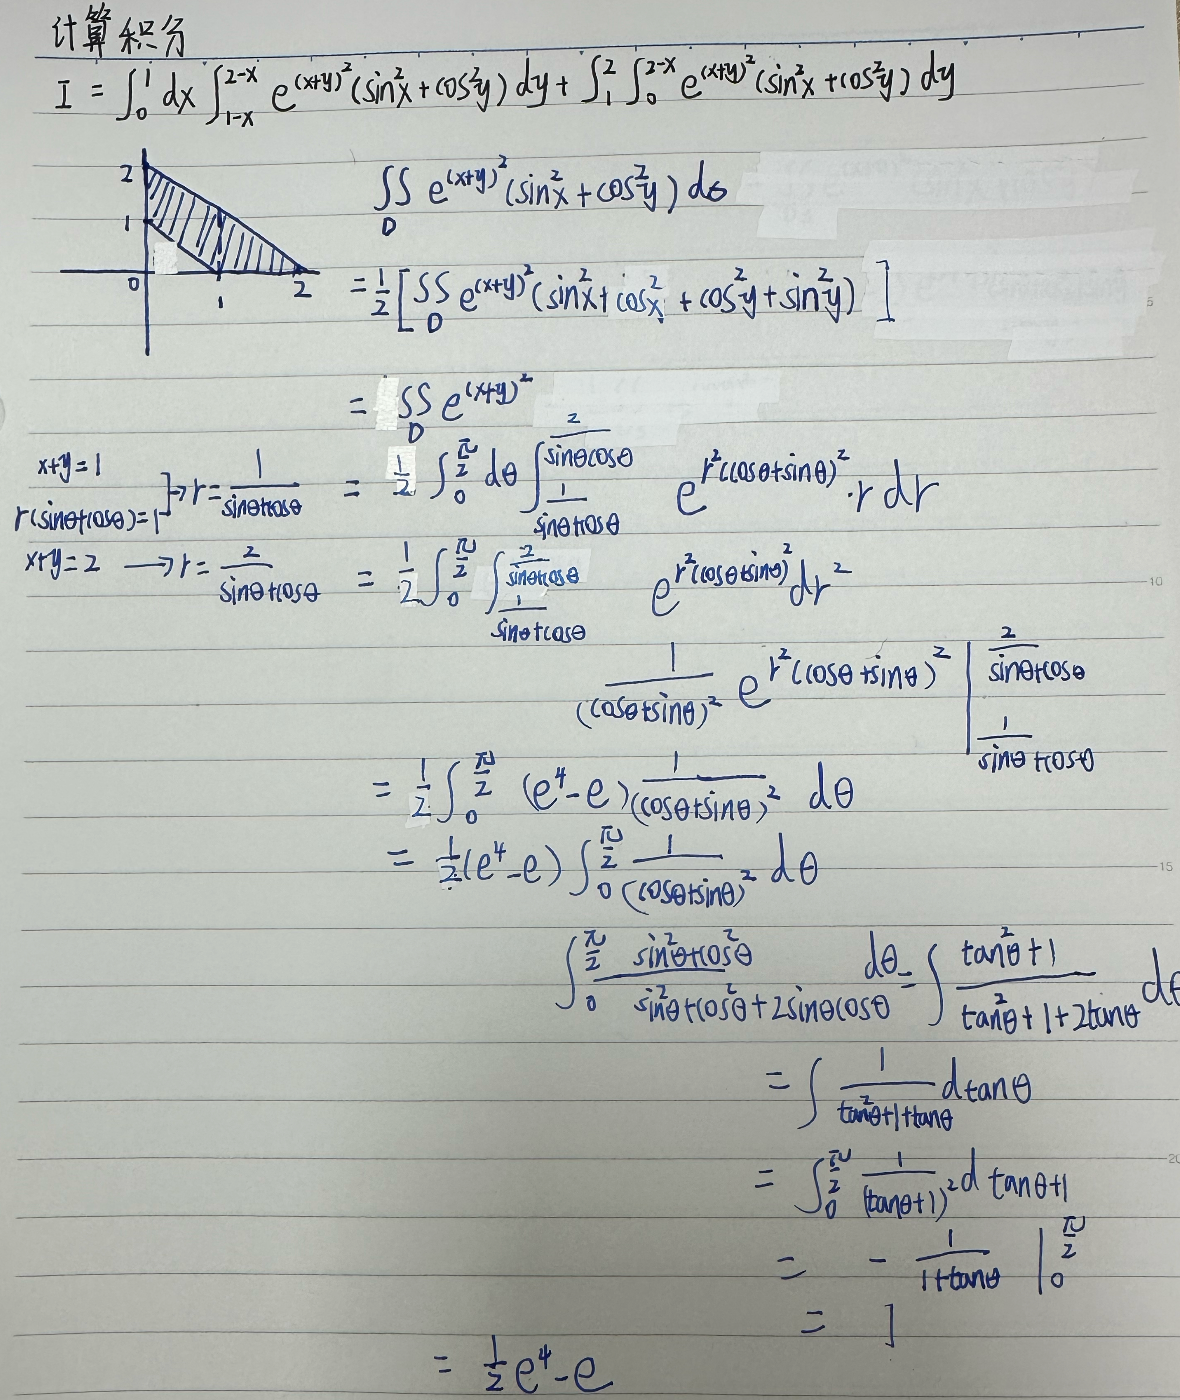 计算积分
I = ∫_0^1 dx ∫_{1-x}^{2-x} e^{(x+y)^2} (sin^2x + cos^2y) dy + ∫_1^2 ∫_0^{2-x} e^{(x+y)^2} (sin^2x + cos^2y) dy
2
1
0
1
2
∬_D e^{(x+y)^2} (sin^2x + cos^2y) dσ
= 1/2 [ ∬_D e^{(x+y)^2} (sin^2x + cos^2x + cos^2y + sin^2y) ]
= ∬_D e^{(x+y)^2}
x+y=1
r(sinθ+cosθ)=1 → r = 1/(sinθ+cosθ)
= 1/2 ∫_0^{π/2} dθ ∫_{1/(sinθ+cosθ)}^{2/(sinθ+cosθ)} e^{r^2(cosθ+sinθ)^2} · r dr
x+y=2 → r = 2/(sinθ+cosθ)
= 1/2 ∫_0^{π/2} ∫_{1/(sinθ+cosθ)}^{2/(sinθ+cosθ)} e^{r^2(cosθ+sinθ)^2} dr^2
1/(cosθ+sinθ)^2 e^{r^2(cosθ+sinθ)^2} |_{1/(sinθ+cosθ)}^{2/(sinθ+cosθ)}
= 1/2 ∫_0^{π/2} (e^4-e) 1/(cosθ+sinθ)^2 dθ
= 1/2 (e^4-e) ∫_0^{π/2} 1/(cosθ+sinθ)^2 dθ
∫_0^{π/2} (sin^2θ+cos^2θ)/(sin^2θ+cos^2θ+2sinθcosθ) dθ = ∫ (tan^2θ+1)/(tan^2θ+1+2tanθ) dθ
= ∫ 1/(tan^2θ+1+tanθ) dtanθ
= ∫_0^{π/2} 1/(tanθ+1)^2 d tanθ+1
= - 1/(1+tanθ) |_0^{π/2}
= 1
= 1/2 e^4 - e
5
10
15
20